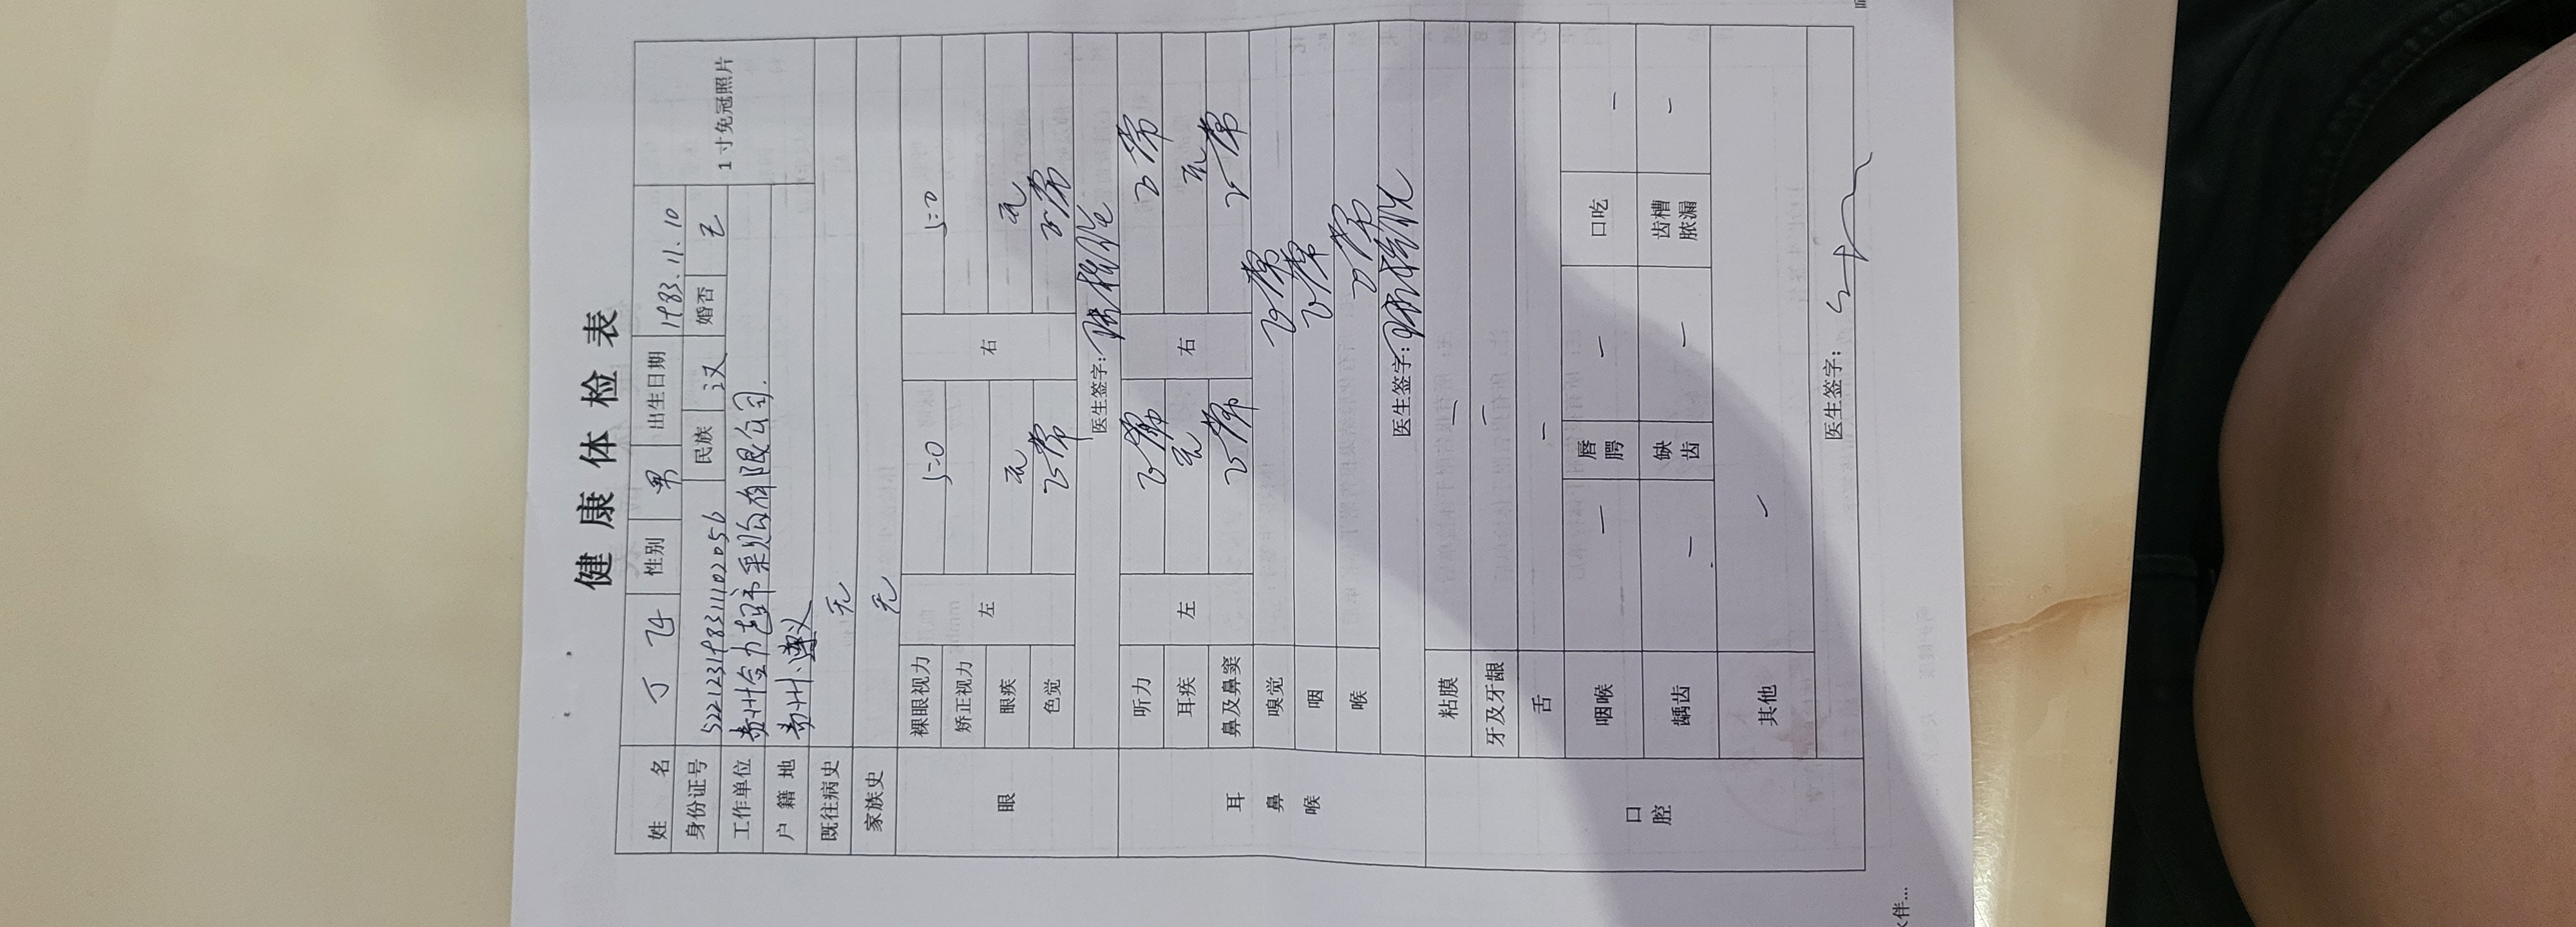 健康体检表
姓名 丁飞 性别 男 出生日期 1983.11.10 1寸免冠照片
身份证号 522123198311102056 民族 汉 婚否
工作单位 贵州合力超市采购有限公司.
户籍地 贵州遵义
既往病史 无
家族史 无
眼 裸眼视力 左 5.0 右 5.0
矫正视力
眼疾 无 无
色觉 正常 正常
医生签字:
耳鼻喉 听力 左 正常 右 正常
耳疾 无 无
鼻及鼻窦 正常 正常
嗅觉 正常
咽 正常
喉 正常
医生签字:
口腔 粘膜 —
牙及牙龈 —
舌 —
咽喉 — 唇腭 — 口吃 —
龋齿 — 缺齿 — 齿槽脓漏 —
其他 —
医生签字:
伙伴...